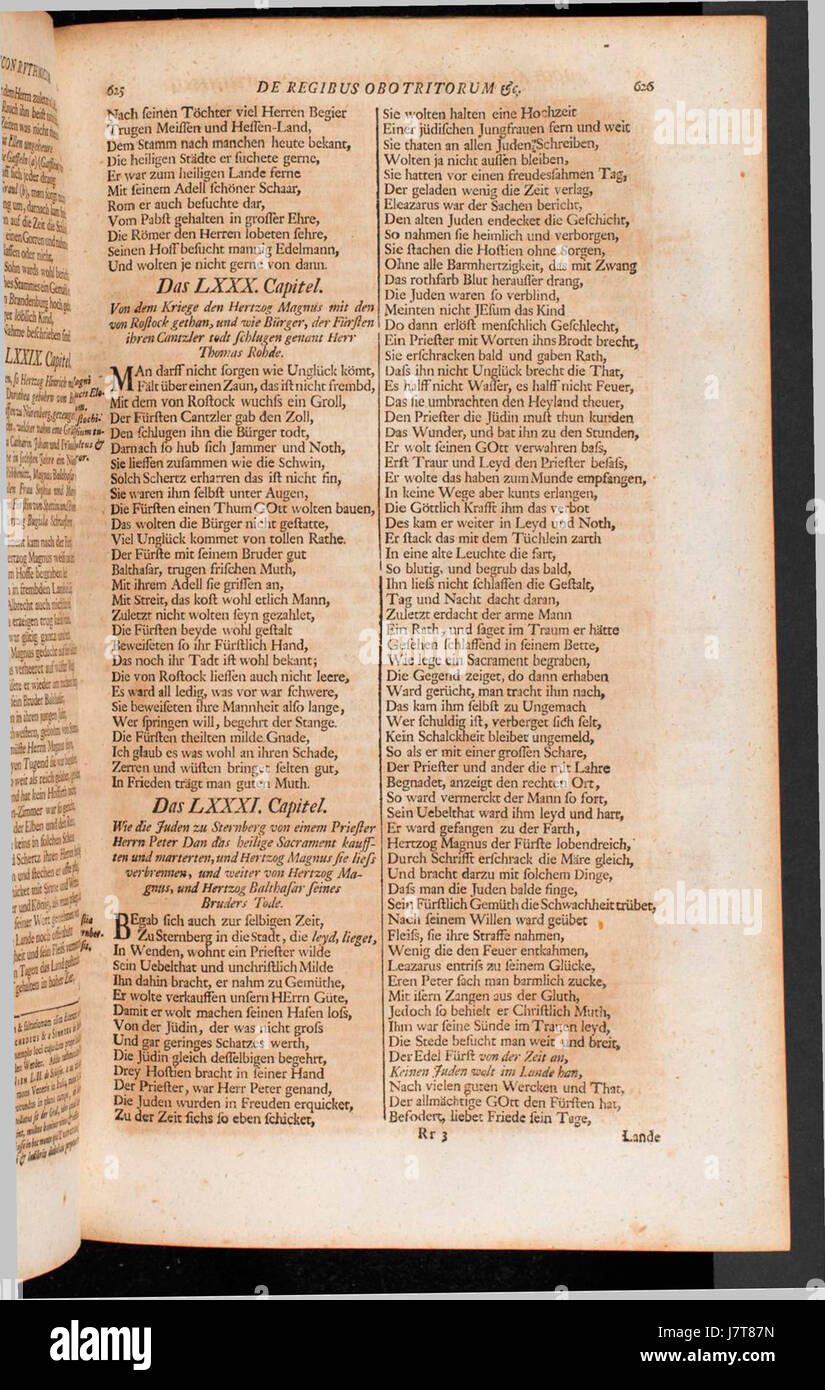 625 DE REGIBUS OBOTRITORUM &c. 626
Nach ſeinen Töchter viel Herren Begier
Trugen Meiſſen und Heſſen-Land,
Dem Stamm nach manchen heute bekant,
Die heiligen Städte er ſuchete gerne,
Er war zum heiligen Lande ferne
Mit ſeinem Adell ſchöner Schaar,
Rom er auch beſuchte dar,
Vom Pabſt gehalten in groſſer Ehre,
Die Römer den Herren lobeten ſehre,
Seinen Hoff beſucht mannig Edelmann,
Und wolten je nicht gerne von dann.
Das LXXX. Capitel.
Von dem Kriege den Hertzog Magnus mit den
von Roſtock gethan, und wie Bürger, der Fürſten
ihren Cantzler todt ſchlugen genant Herr
Thomas Rohde.
MAn darff nicht ſorgen wie Unglück kömt,
Fält über einen Zaun, das iſt nicht frembd,
Mit dem von Roſtock wuchſs ein Groll,
Der Fürſten Cantzler gab den Zoll,
Den ſchlugen ihn die Bürger todt,
Darnach ſo hub ſich Jammer und Noth,
Sie lieſſen zuſammen wie die Schwin,
Solch Schertz erharren das iſt nicht fin,
Sie waren ihm ſelbſt unter Augen,
Die Fürſten einen Thum GOtt wolten bauen,
Das wolten die Bürger nicht geſtatte,
Viel Unglück kommet von tollen Rathe.
Der Fürſte mit ſeinem Bruder gut
Balthaſar, trugen friſchen Muth,
Mit ihrem Adell ſie griffen an,
Mit Streit, das koſt wohl etlich Mann,
Zuletzt nicht wolten ſeyn gezahlet,
Die Fürſten beyde wohl geſtalt
Beweiſeten ſo ihr Fürſtlich Hand,
Das noch ihr Tadt iſt wohl bekant;
Die von Roſtock lieſſen auch nicht leere,
Es ward all ledig, was vor war ſchwere,
Sie beweiſeten ihre Mannheit alſo lange,
Wer ſpringen will, begehrt der Stange.
Die Fürſten theilten milde Gnade,
Ich glaub es was wohl an ihren Schade,
Zerren und wüſten bringet ſelten gut,
In Frieden trägt man guten Muth.
Das LXXXI. Capitel.
Wie die Juden zu Sternberg von einem Prieſter
Herrn Peter Dan das heilige Sacrament kauff-
ten und marterten, und Hertzog Magnus ſie lieſs
verbrennen, und weiter von Hertzog Ma-
gnus, und Hertzog Balthaſar ſeines
Bruders Tode.
BEgab ſich auch zur ſelbigen Zeit,
Zu Sternberg in die Stadt, die leyd, lieget,
In Wenden, wohnt ein Prieſter wilde
Sein Uebelthat und unchriſtlich Milde
Ihn dahin bracht, er nahm zu Gemüthe,
Er wolte verkauffen unſern HErrn Güte,
Damit er wolt machen ſeinen Haſen loſs,
Von der Jüdin, der was nicht groſs
Und gar geringes Schatzes werth,
Die Jüdin gleich deſſelbigen begehrt,
Drey Hoſtien bracht in ſeiner Hand
Der Prieſter, war Herr Peter genand,
Die Juden wurden in Freuden erquicket,
Zu der Zeit ſichs ſo eben ſchicket,
Sie wolten halten eine Hochzeit
Einer jüdiſchen Jungfrauen fern und weit
Sie thaten an allen Juden Schreiben,
Wolten ja nicht auſſen bleiben,
Sie hatten vor einen freudesſahmen Tag,
Der geladen wenig die Zeit verlag,
Eleazarus war der Sachen bericht,
Den alten Juden endecket die Geſchicht,
So nahmen ſie heimlich und verborgen,
Sie ſtachen die Hoſtien ohne Sorgen,
Ohne alle Barmhertzigkeit, das mit Zwang
Das rothfarb Blut herauſſer drang,
Die Juden waren ſo verblind,
Meinten nicht JEſum das Kind
Do dann erlöſt menſchlich Geſchlecht,
Ein Prieſter mit Worten ihns Brodt brecht,
Sie erſchracken bald und gaben Rath,
Daſs ihn nicht Unglück brecht die That,
Es halff nicht Waſſer, es halff nicht Feuer,
Das ſie umbrachten den Heyland theuer,
Den Prieſter die Jüdin muſt thun kunden
Das Wunder, und bat ihn zu den Stunden,
Er wolt ſeinen GOtt verwahren baſs,
Erſt Traur und Leyd den Prieſter beſaſs,
Er wolte das haben zum Munde empfangen,
In keine Wege aber kunts erlangen,
Die Göttlich Krafft ihm das verbot
Des kam er weiter in Leyd und Noth,
Er ſtack das mit dem Tüchlein zarth
In eine alte Leuchte die fart,
So blutig, und begrub das bald,
Ihn lieſs nicht ſchlaffen die Geſtalt,
Tag und Nacht dacht daran,
Zuletzt erdacht der arme Mann
Ein Rath, und ſaget im Traum er hätte
Geſehen ſchlaffend in ſeinem Bette,
Wie lege ein Sacrament begraben,
Die Gegend zeiget, do dann erhaben
Ward gerücht, man tracht ihm nach,
Das kam ihm ſelbſt zu Ungemach
Wer ſchuldig iſt, verberget ſich ſelt,
Kein Schalckheit bleibet ungemeld,
So als er mit einer groſſen Schare,
Der Prieſter und ander die mit Lahre
Begnadet, anzeigt den rechten Ort,
So ward vermerckt der Mann ſo fort,
Sein Uebelthat ward ihm leyd und hart,
Er ward gefangen zu der Farth,
Hertzog Magnus der Fürſte lobendreich,
Durch Schrifft erſchrack die Märe gleich,
Und bracht darzu mit ſolchem Dinge,
Daſs man die Juden balde finge,
Sein Fürſtlich Gemüth die Schwachheit trübet,
Nach ſeinem Willen ward geübet
Fleiſs, ſie ihre Straffe nahmen,
Wenig die den Feuer entkahmen,
Leazarus entriſs zu ſeinem Glücke,
Eren Peter ſach man barmlich zucke,
Mit iſern Zangen aus der Gluth,
Jedoch ſo behielt er Chriſtlich Muth,
Ihm war ſeine Sünde im Trauen leyd,
Die Stede beſucht man weit und breit,
Der Edel Fürſt von der Zeit an,
Keinen Juden wolt im Lande han,
Nach vielen guten Wercken und That,
Der allmächtige GOtt den Fürſten hat,
Befodert, liebet Friede ſein Tage,
Rr 3 Lande
alamy
Image ID: J7T87N
www.alamy.com